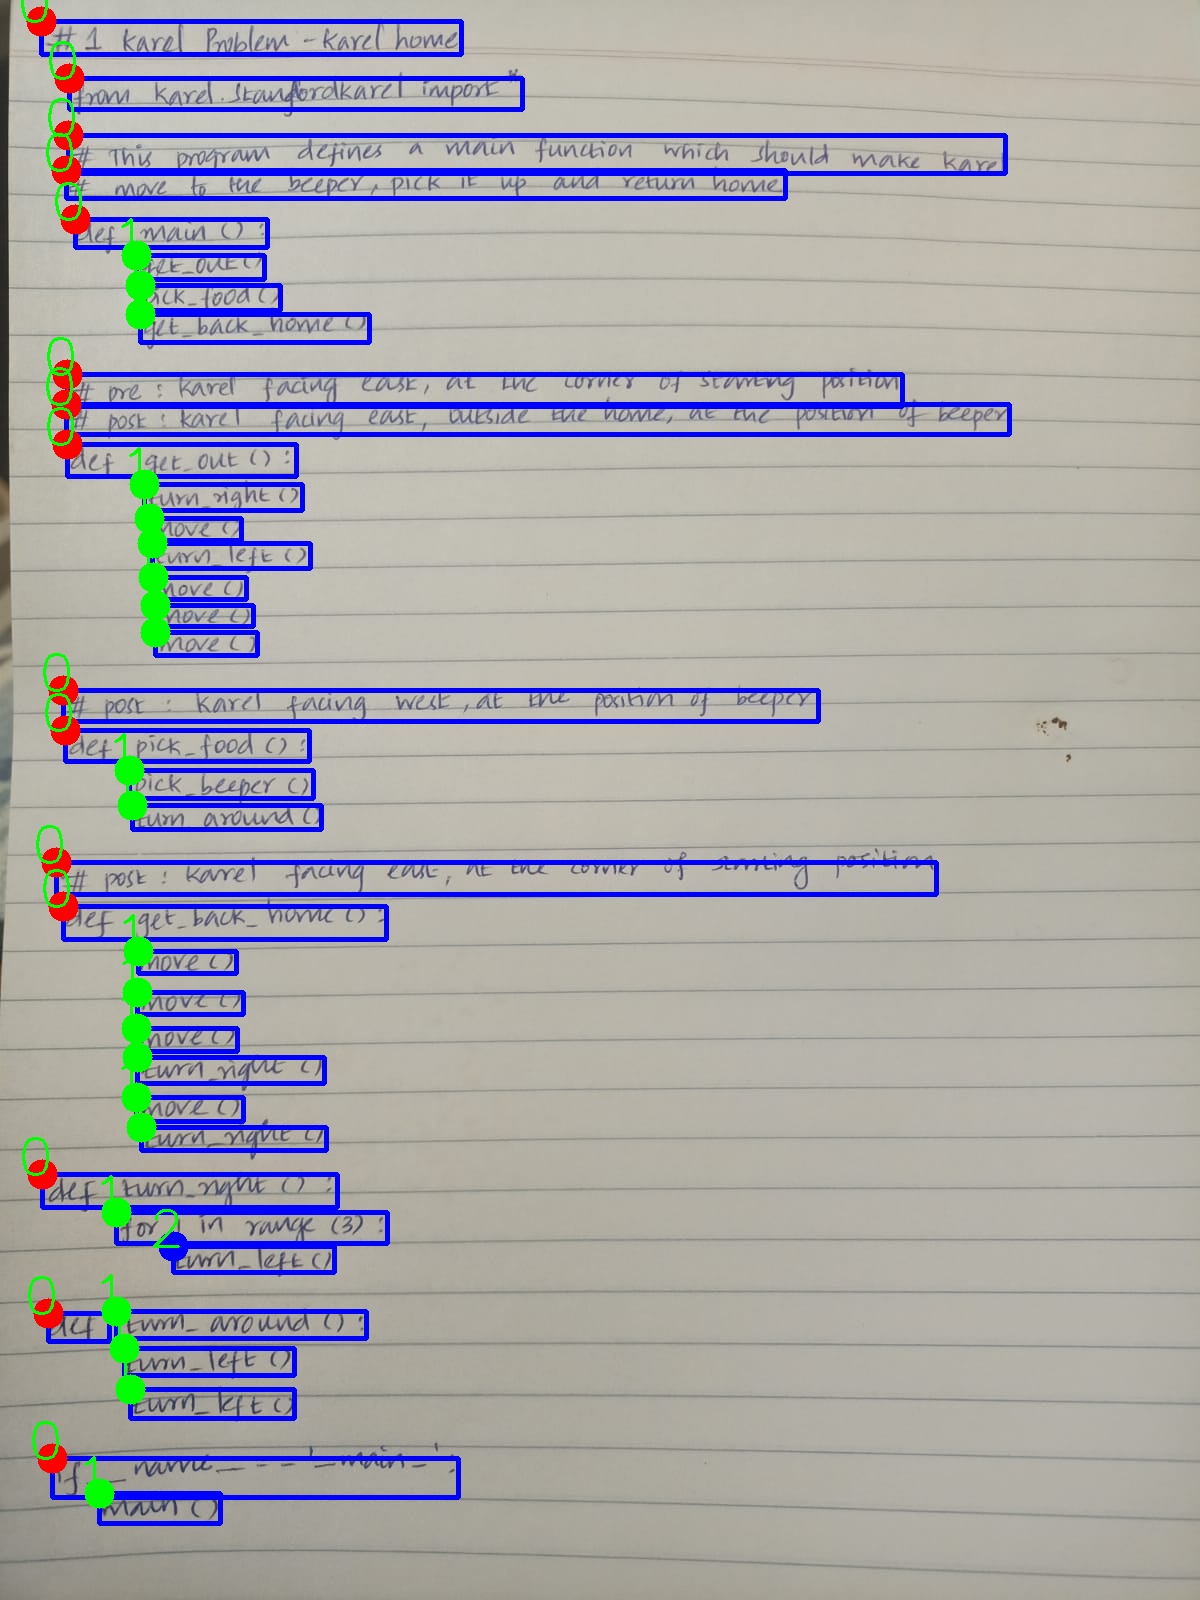 # 1 Karel Problem - Karel home
from karel.stanfordkarel import *
# This program defines a main function which should make karel
# move to the beeper, pick it up and return home
def main ():
get_out()
pick_food()
get_back_home()
# pre : Karel facing east, at the corner of starting position
# post : Karel facing east, outside the home, at the position of beeper
def get_out () :
turn_right ()
move ()
turn_left ()
move ()
move ()
move ()
# post : Karel facing west, at the position of beeper
def pick_food () :
pick_beeper ()
turn_around ()
# post : Karel facing east, at the corner of starting position
def get_back_home () :
move ()
move ()
move ()
turn_right ()
move ()
turn_right ()
def turn_right () :
for i in range (3) :
turn_left ()
def turn_around () :
turn_left ()
turn_left ()
if __name__ == '_main_' :
main ()